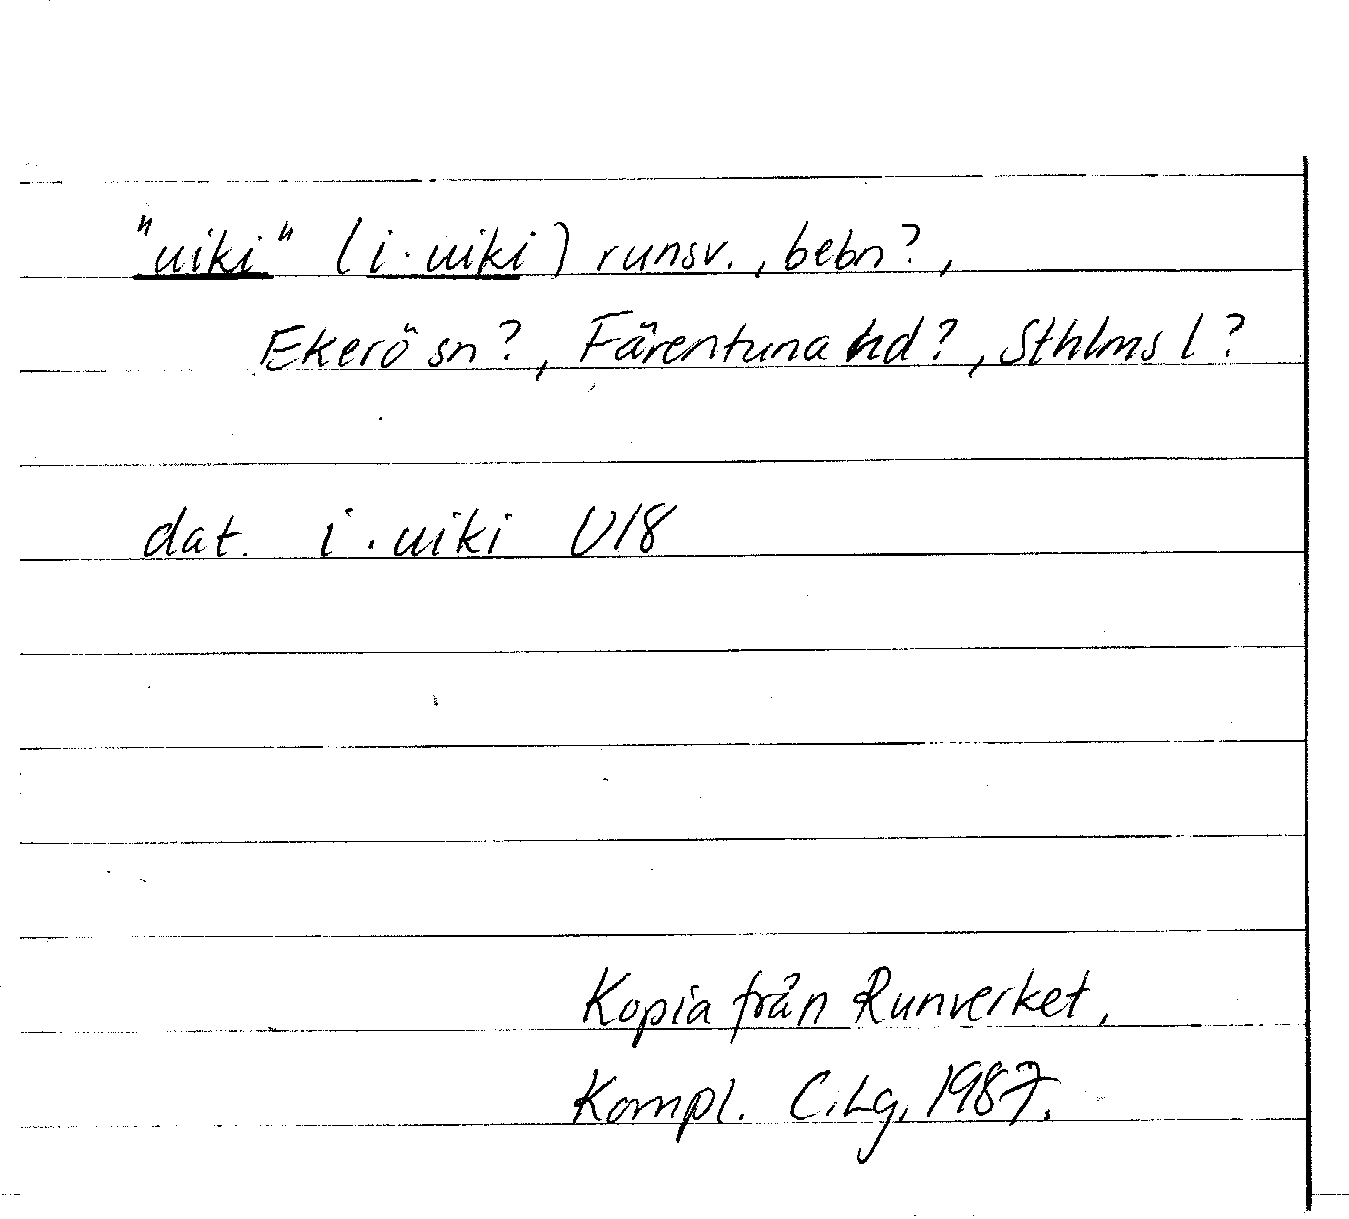 "uiki" (i · uiki) runsv., bebn?,
Ekerö sn?, Färentuna hd?, Sthlms l?
dat. i · uiki U18
Kopia från Runverket,
Kompl. C.Lg, 1987.